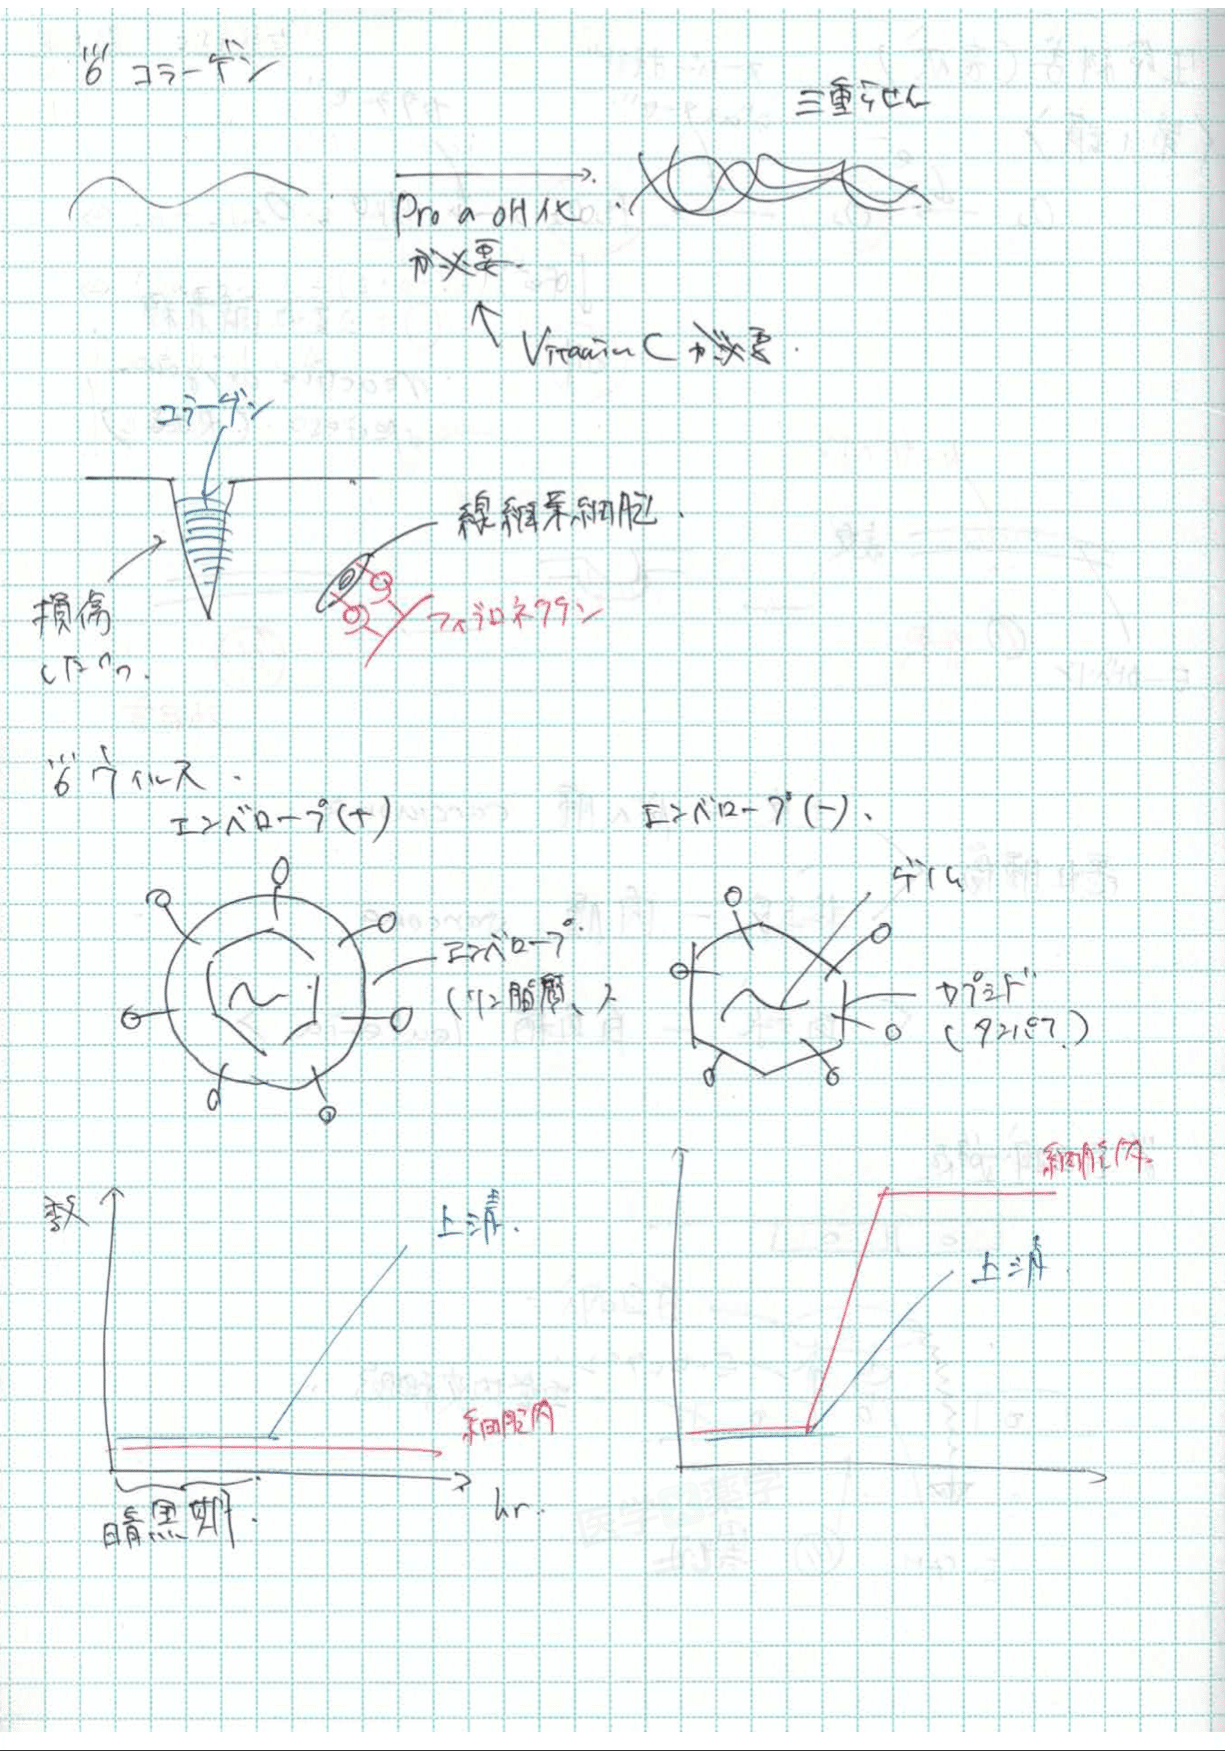 コラーゲン
三重らせん
ProのoH化
が必要.
Vitamin C が必要.
コラーゲン
線維芽細胞.
フィブロネクチン
損傷
ウイルス.
エンベロープ(+)
エンベロープ(-).
ゲノム
エンベロープ.
(リン脂質、)
カプシド
(タンパク.)
数
上清.
細胞内
暗黒期.
hr.
細胞内.
上清.